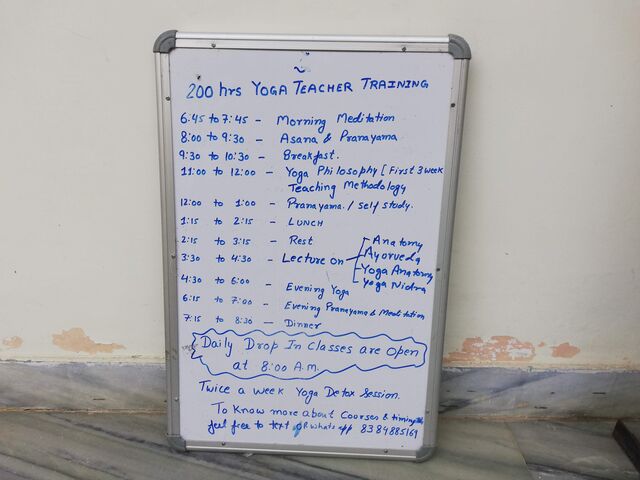 200 hrs YOGA TEACHER TRAINING
6:45 to 7:45 - Morning Meditation
8:00 to 9:30 - Asana & Pranayama
9:30 to 10:30 - Breakfast.
11:00 to 12:00 - Yoga Philosophy [First 3 week
Teaching Methodology
12:00 to 1:00 - Pranayama. / self study.
1:15 to 2:15 - LUNCH
2:15 to 3:15 - Rest
3:30 to 4:30 - Lecture on
Anatomy
Ayurveda
Yoga Anatomy
Yoga Nidra
4:30 to 6:00 - Evening Yoga
6:15 to 7:00 - Evening Pranayama & Meditation
7:15 to 8:30 - Dinner
Daily Drop In Classes are open
at 8:00 A.M.
Twice a week Yoga Detox Session.
To Know more about Courses & timings
feel free to text OR whats app 8384885169